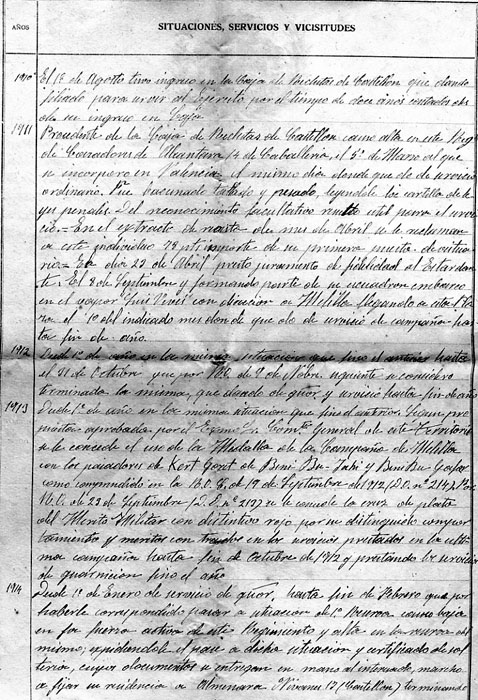 AÑOS
SITUACIONES, SERVICIOS Y VICISITUDES
1910 El 1º de Agosto tuvo ingreso en la Caja de Reclutas de Castellon quedando
filiado para servir al Ejercito por el tiempo de doce años contados desde
de su ingreso en Caja
1911 Procedente de la Caja de Reclutas de Castellon causo alta en este Reg
de Cazadores de Alcantara 14 de Caballeria, el 5 de Marzo al que
se incorporo en Valencia el mismo dia donde quedo de servicio
ordinario. Fue vacunado tallado y pesado, leyendole los cartilla de le
yes penales. Del reconocimiento facultativo resulto util para el servi
cio. = En el extracto de revista del mes de Abril se le reclaman
a este individuo importe de su primera puesta de vestua
rio. = El dia 23 de Abril presto juramento de fidelidad al Estandar
te. El 8 de Septiembre y formando parte de su escuadron embarco
en el vapor con direccion a Melilla llegando a esta Pla
za el del indicado mes donde quedo de servicio de campaña has
ta fin de año.
1912 Desde 1º de año en la misma situacion que fino el anterior hasta
el 31 de Octubre que por R.O. de 9 de Nobre. siguiente se considero
terminada la misma, quedando de gñor. y servicio hasta fin de año
1913 Desde 1º de año en la misma situacion que fino el anterior. Segun pro
puesta aprobada por el Exmo. Sr. Comte. General de este Territorio
se le concede el uso de la Medalla de la Campaña de Melilla
con los pasadores de Kert Garet de Beni Bu-Gafar
como comprendido en la R.O.C. de 19 de Septiembre de 1912 (D.O. nº 214) Por
R.O. de 23 de Septiembre (D.O. nº 217) se le concede la cruz de plata
del Merito Militar con distintivo rojo por su distinguido compor
tamiento y meritos contraidos en los servicios prestados en la ulti
ma campaña hasta fin de Octubre de 1912 y prestando los servicios
de guarnicion fino el año
1914 Desde 1º de Enero de servicio de gñor., hasta fin de Febrero que por
haberle correspondido pasar a situacion de 1ª Reserva causo baja
en la fuerza activa de este Regimiento y alta en la reserva del
mismo, expidiendole el pase a dicha situacion y certificado de sol
teria, cuyos documentos se entregan en mano al interesado, marcho
a fijar su residencia a Almenara 13 (Castellon) terminando